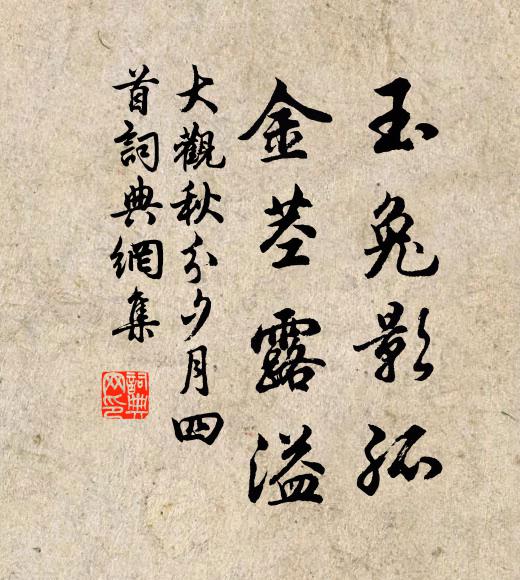 玉兔影孤
金茎露溢
大觀秋分夕月四
首詞典網集
詞典
网印